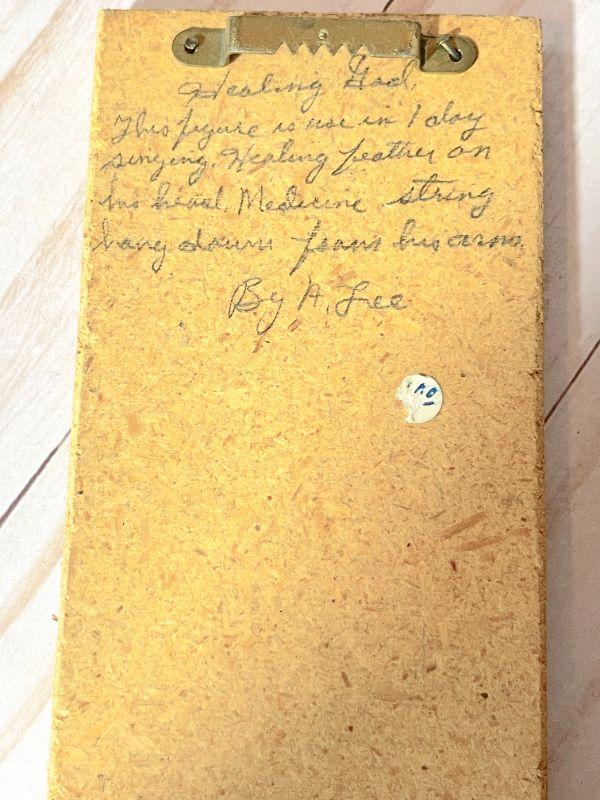 Healing God.
This figure is use in 1 day
singing. Healing feather on
his head. Medicine string
hang down from his arm.
By A. Lee